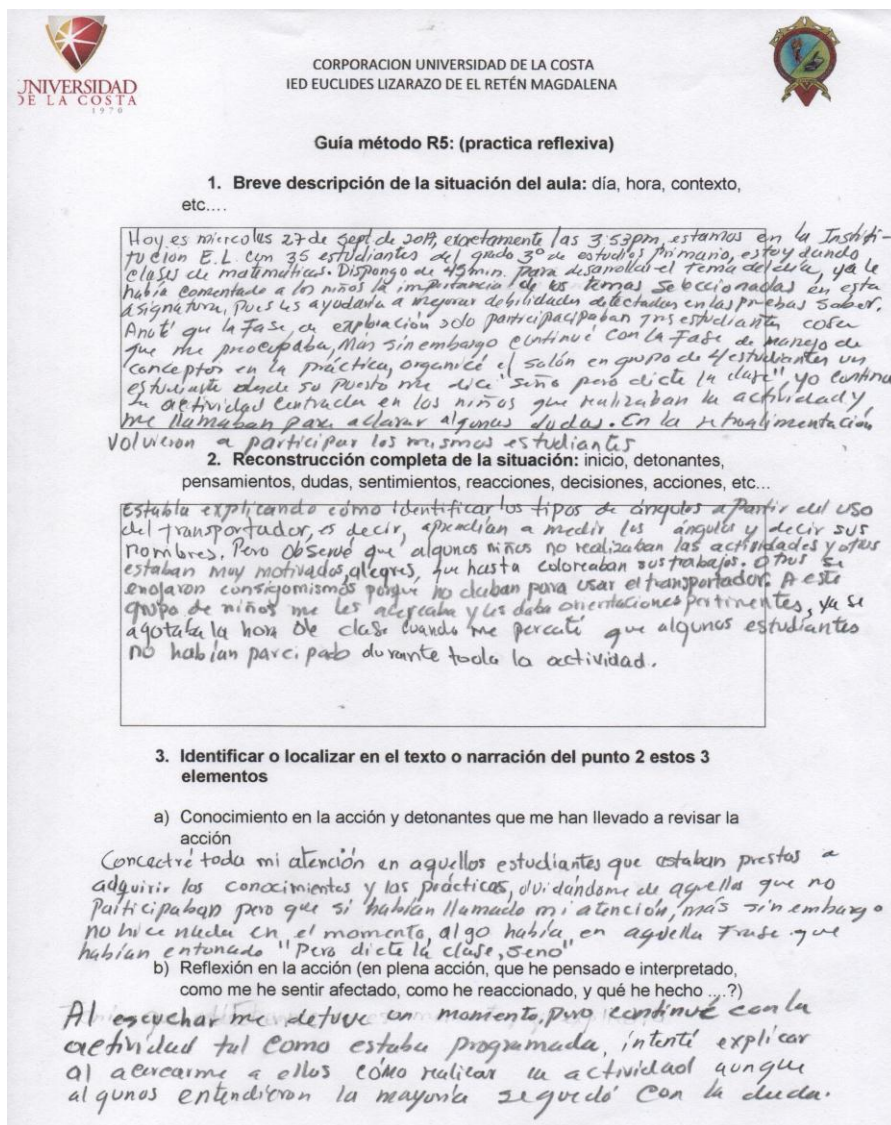 UNIVERSIDAD
DE LA COSTA
1970
CORPORACION UNIVERSIDAD DE LA COSTA
IED EUCLIDES LIZARAZO DE EL RETÉN MAGDALENA
Guía método R5: (practica reflexiva)
1. Breve descripción de la situación del aula: día, hora, contexto,
etc....
Hoy es miercoles 27 de sept de 2017, exactamente las 3:53pm, estamos en la Institu-
tución E.L. con 35 estudiantes del grado 3º de estudios primario, estoy dando
clases de matemáticas. Dispongo de 45 min. para desarrollar el tema del día, ya le
había comentado a los niños la importancia de los temas seleccionadas en esta
asignatura, pues les ayudaría a mejorar debilidades detectadas en las pruebas saber.
Anoté que la Fase, de exploración solo participacipaban tres estudiantes cosa
que me preocupaba, Mas sin embargo continué con la Fase de manejo de
conceptos en la práctica, organicé el salón en grupo de 4 estudiantes un
estudiante desde su puesto me dice "seño pero dicte la clase", yo continue
la actividad centrada en los niños que realizaban la actividad y
me llamaban para aclarar algunas dudas. En la retroalimentación
volvieron a participar los mismos estudiantes
2. Reconstrucción completa de la situación: inicio, detonantes,
pensamientos, dudas, sentimientos, reacciones, decisiones, acciones, etc...
Estaba explicando cómo identificar los tipos de ángulos a partir del uso
del transportador, es decir, aprendían a medir los ángulos y decir sus
nombres. Pero observé que algunos niños no realizaban las actividades y otros
estaban muy motivados, alegres, que hasta coloreaban sus trabajos. Otros se
enojaron consigomismos porque no daban para usar el transportador. A este
grupo de niños me les acercaba y les daba orientaciones pertinentes, ya se
agotaba la hora de clase cuando me percaté que algunos estudiantes
no habían parcipado durante toda la actividad.
3. Identificar o localizar en el texto o narración del punto 2 estos 3
elementos
a) Conocimiento en la acción y detonantes que me han llevado a revisar la
acción
Concectré toda mi atención en aquellos estudiantes que estaban prestos a
adquirir los conocimientos y las prácticas, olvidándome de aquellos que no
participaban pero que si habían llamado mi atención, más sin embargo
no hice nada en el momento, algo había en aquella Frase que
habían entonado "Pero dicte la clase, seno"
b) Reflexión en la acción (en plena acción, que he pensado e interpretado,
como me he sentir afectado, como he reaccionado, y qué he hecho ....?)
Al escuchar me detuve un momento, pero continué con la
actividad tal como estaba programada, intenté explicar
al acercarme a ellos cómo realizar la actividad aunque
algunos entendieron la mayoría se quedó con la duda.